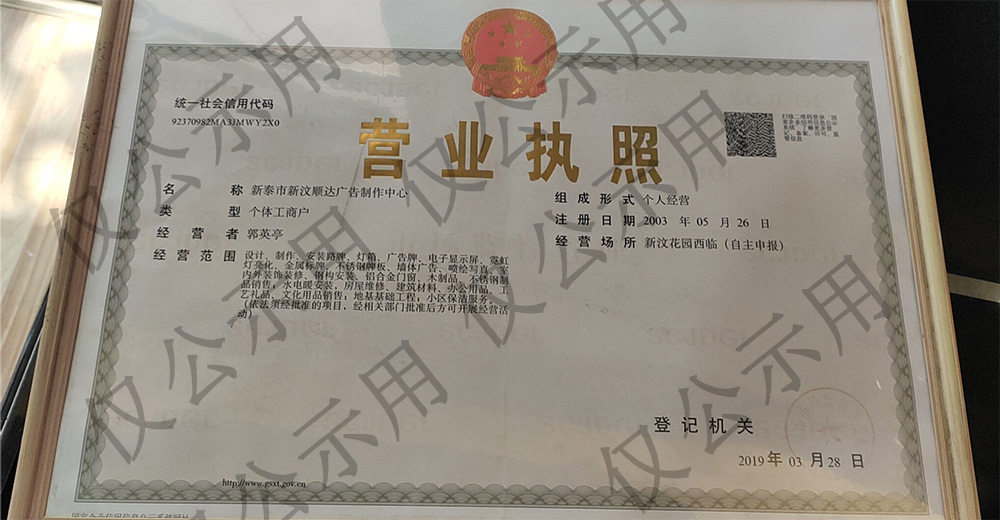 统一社会信用代码
92370982MA3JMWY2X0
扫描二维码登录“国
家企业信用信息公示
系统”了解更多登
记、备案、许可、监
管信息
营业执照
名称 新泰市新汶顺达广告制作中心
类型 个体工商户
经营者 郭英亭
经营范围 设计、制作、安装路牌、灯箱、广告牌、电子显示屏、霓虹
灯亮化、金属标牌、不锈钢牌板、墙体广告、喷绘写真、室
内外装饰装修、钢构安装、铝合金门窗、木制品、不锈钢制
品销售；水电暖安装、房屋维修、建筑材料、办公用品、工
艺礼品、文化用品销售；地基基础工程；小区保洁服务。
（依法须经批准的项目，经相关部门批准后方可开展经营活
动）
组成形式 个人经营
注册日期 2003 年 05 月 26 日
经营场所 新汶花园西临（自主申报）
登记机关
2019 年 03 月 28 日
http://www.gsxt.gov.cn
国家企业信用信息公示系统网址
仅公示用
仅公示用
仅公示用
仅公示用
仅公示用
仅公示用